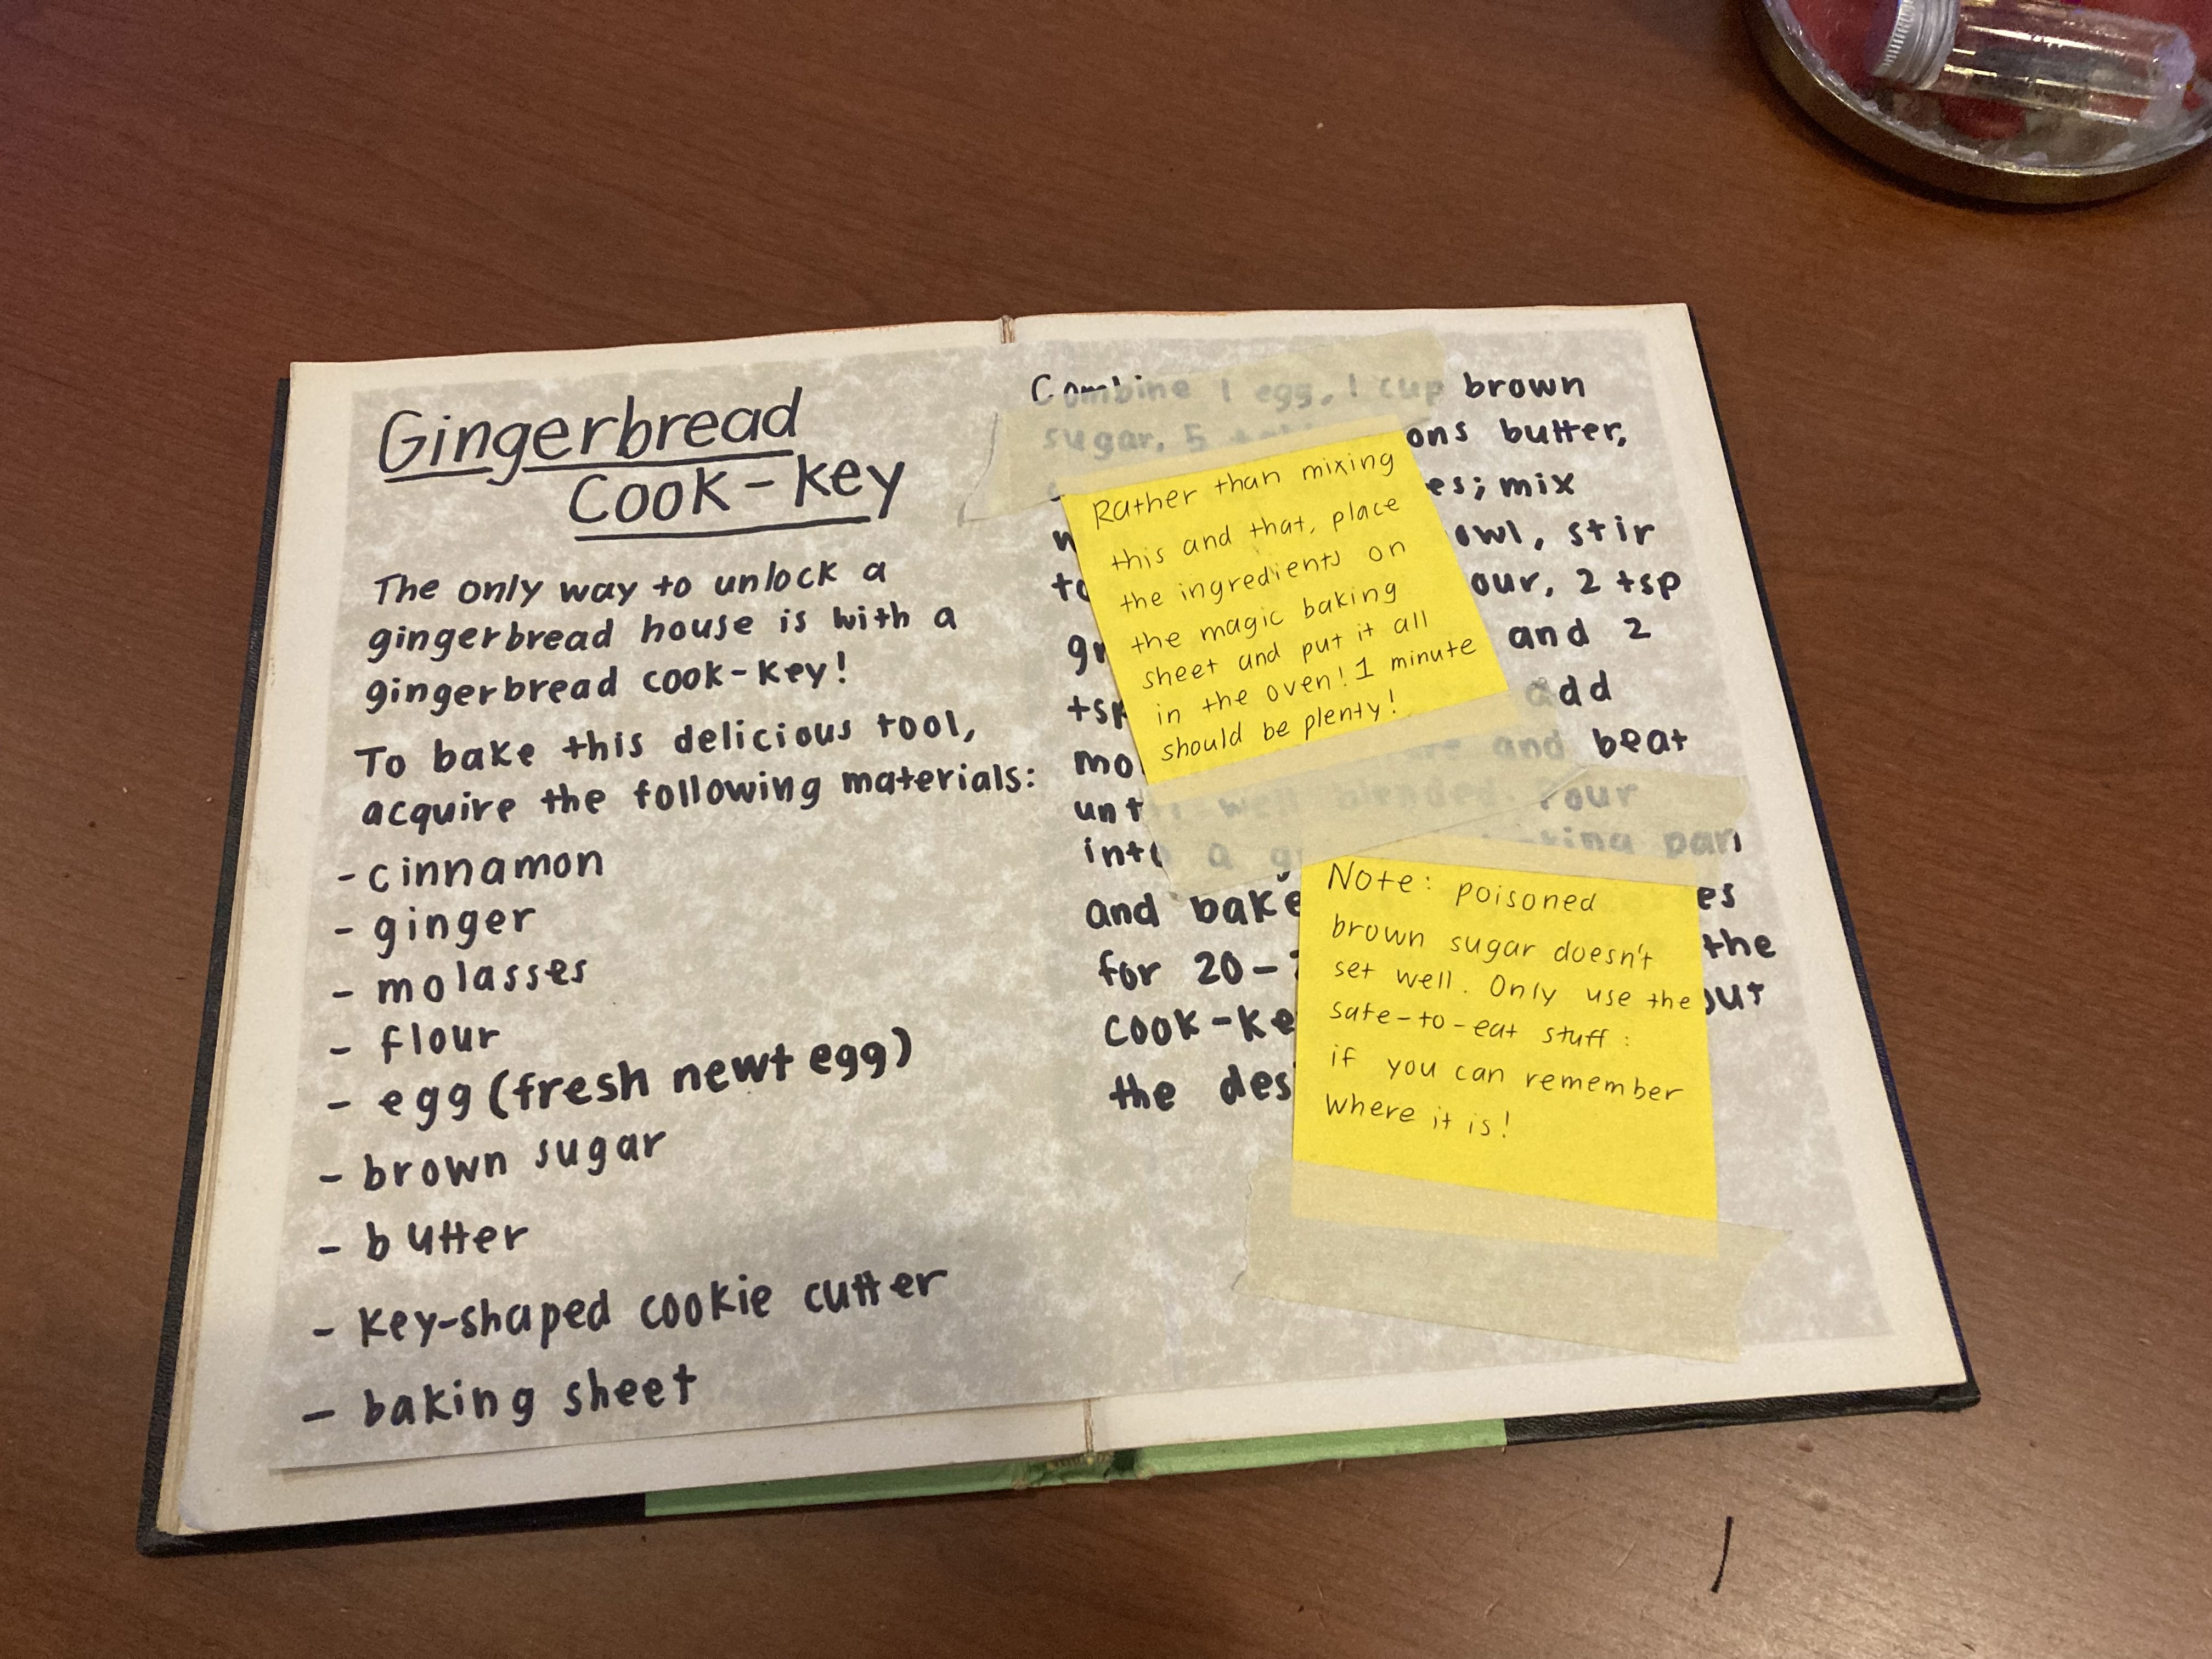 Gingerbread
Cook-key
The only way to unlock a
gingerbread house is with a
gingerbread cook-key!
To bake this delicious tool,
acquire the following materials:
- cinnamon
- ginger
- molasses
- flour
- egg (fresh newt egg)
- brown sugar
- butter
- key-shaped cookie cutter
- baking sheet
Combine 1 egg, 1 cup brown
sugar, 5 butter,
; mix
stir
2 tsp
and 2
add
and beat
well blended. Pour
into a pan
and bake
for 20- the
the
Rather than mixing
this and that, place
the ingredients on
the magic baking
sheet and put it all
in the oven! 1 minute
should be plenty!
Note: poisoned
brown sugar doesn't
set well. Only use the
safe-to-eat stuff:
if you can remember
where it is!